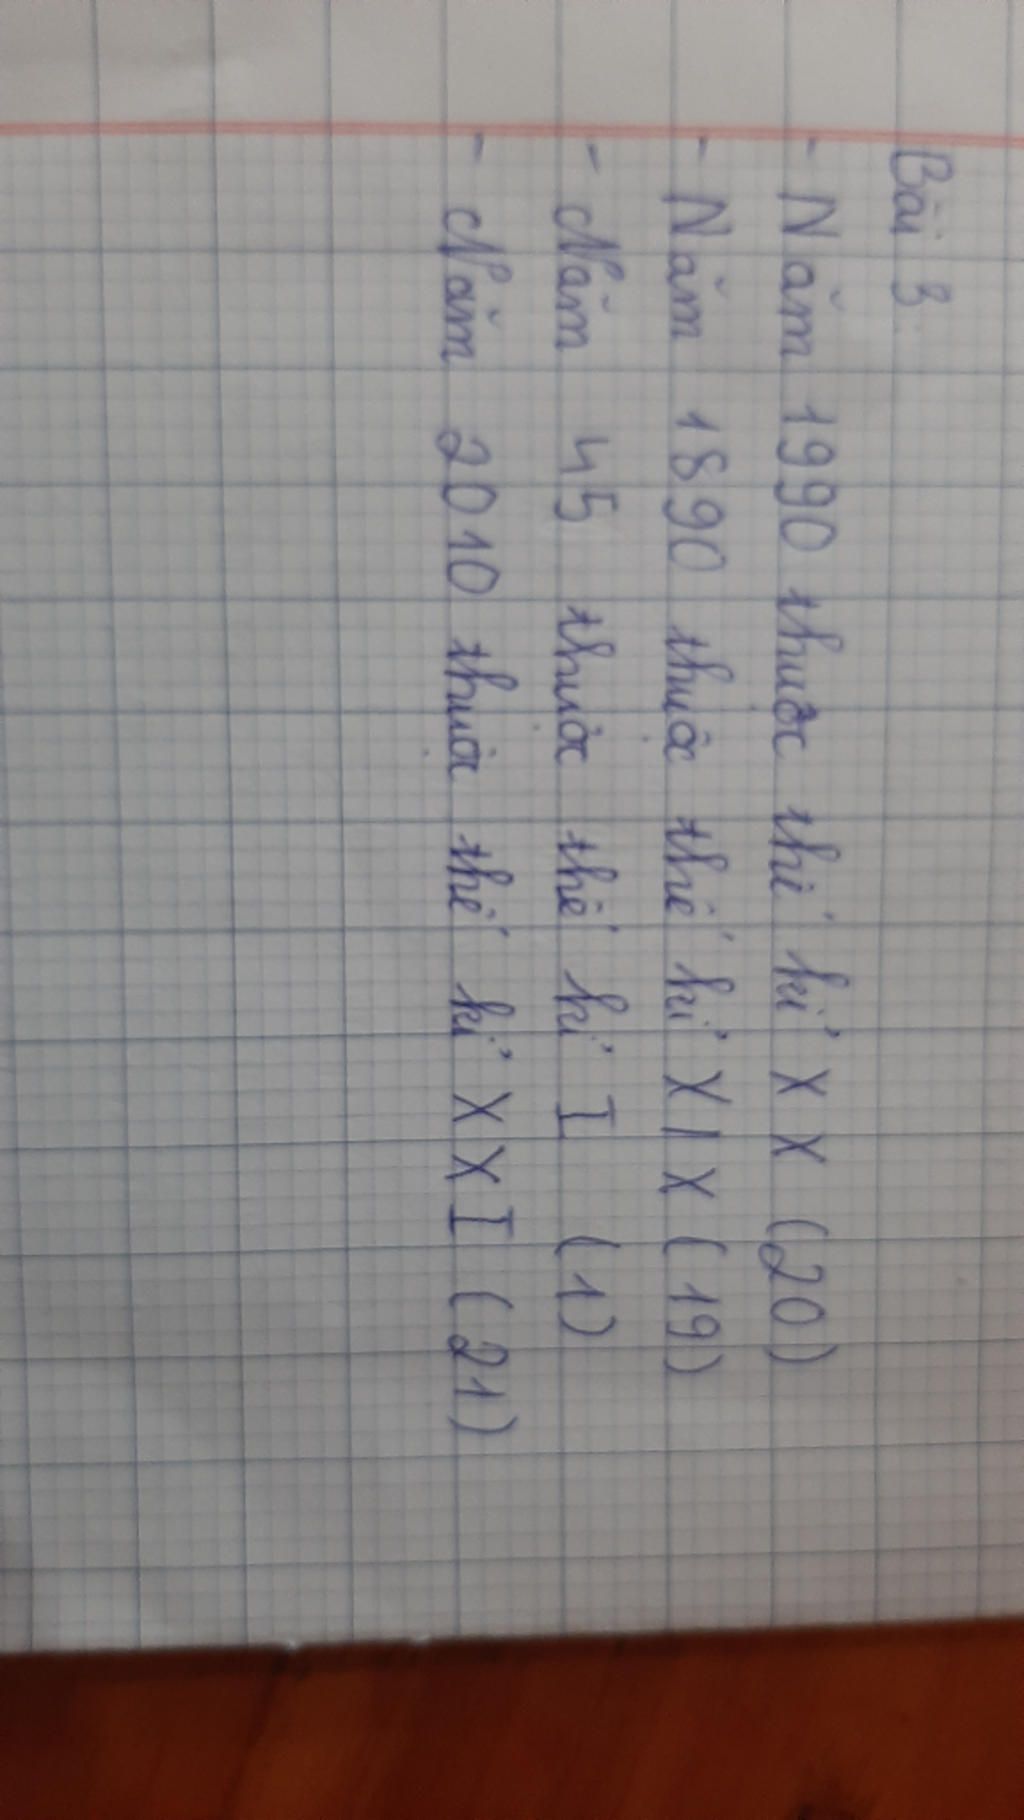 Bài 3:
- Năm 1990 thuộc thế kỉ XX (20)
- Năm 1890 thuộc thế kỉ XIX (19)
- Năm 45 thuộc thế kỉ I (1)
- Năm 2010 thuộc thế kỉ XXI (21)